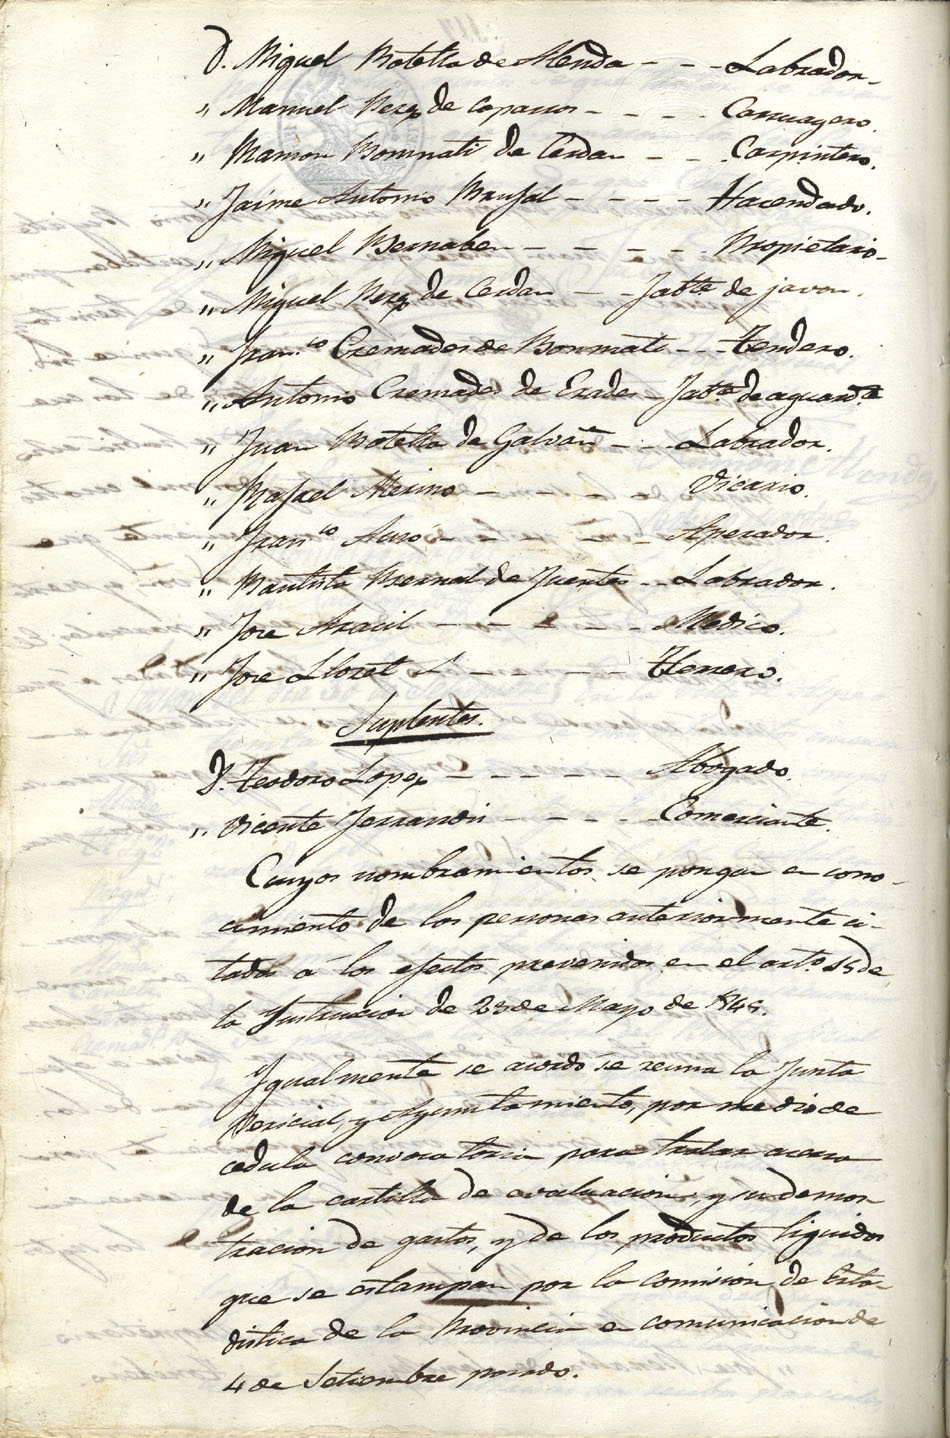 D. Miguel Botella de Alenda - - - Labrador.
" Manuel Perez de Caparros - - - - Carruagero.
" Ramon Bonmati de Cerdan - - Carpintero.
" Jaime Antonio Mrufal - - - - Hacendado.
" Miguel Bernabeu - - - - - Propietario.
" Miguel Perez de Cerdan - - Fabte de javon.
" Franco Cremades de Bonmati - - Tendero.
" Antonio Cremades de Erades - Fabte de aguardte
" Juan Botella de Galvañ - - - Labrador.
" Rafael Merino - - - - - Vicario.
" Franco Asco - - - - - Aperador.
" Bautista Bernal de Fuentes - - Labrador.
" Jose Aracil - - - - - - Medico.
" Jose Lloret - - - - - Herrero.
Suplentes.
D. Teodoro Lopez - - - - - Abogado.
" Vicente Ferrandis - - - - - Comerciante.
Cuyos nombramientos se pongan en cono-
cimiento de los personas anteriormente ci-
tadas á los efectos prevenidos en el arto. 15 de
la Instruccion de 23 de Mayo de 1845.
Igualmente se acordó se reuna la Junta
Pericial, y Ayuntamiento, por medio de
cedula convocatoria para tratar acerca
de la cartilla de evaluacion, y su demos
tracion de gastos, y de los productos liquidos
que se estampan por la Comision de Esta-
distica de la Provincia en comunicacion de
4 de Setiembre pasado.